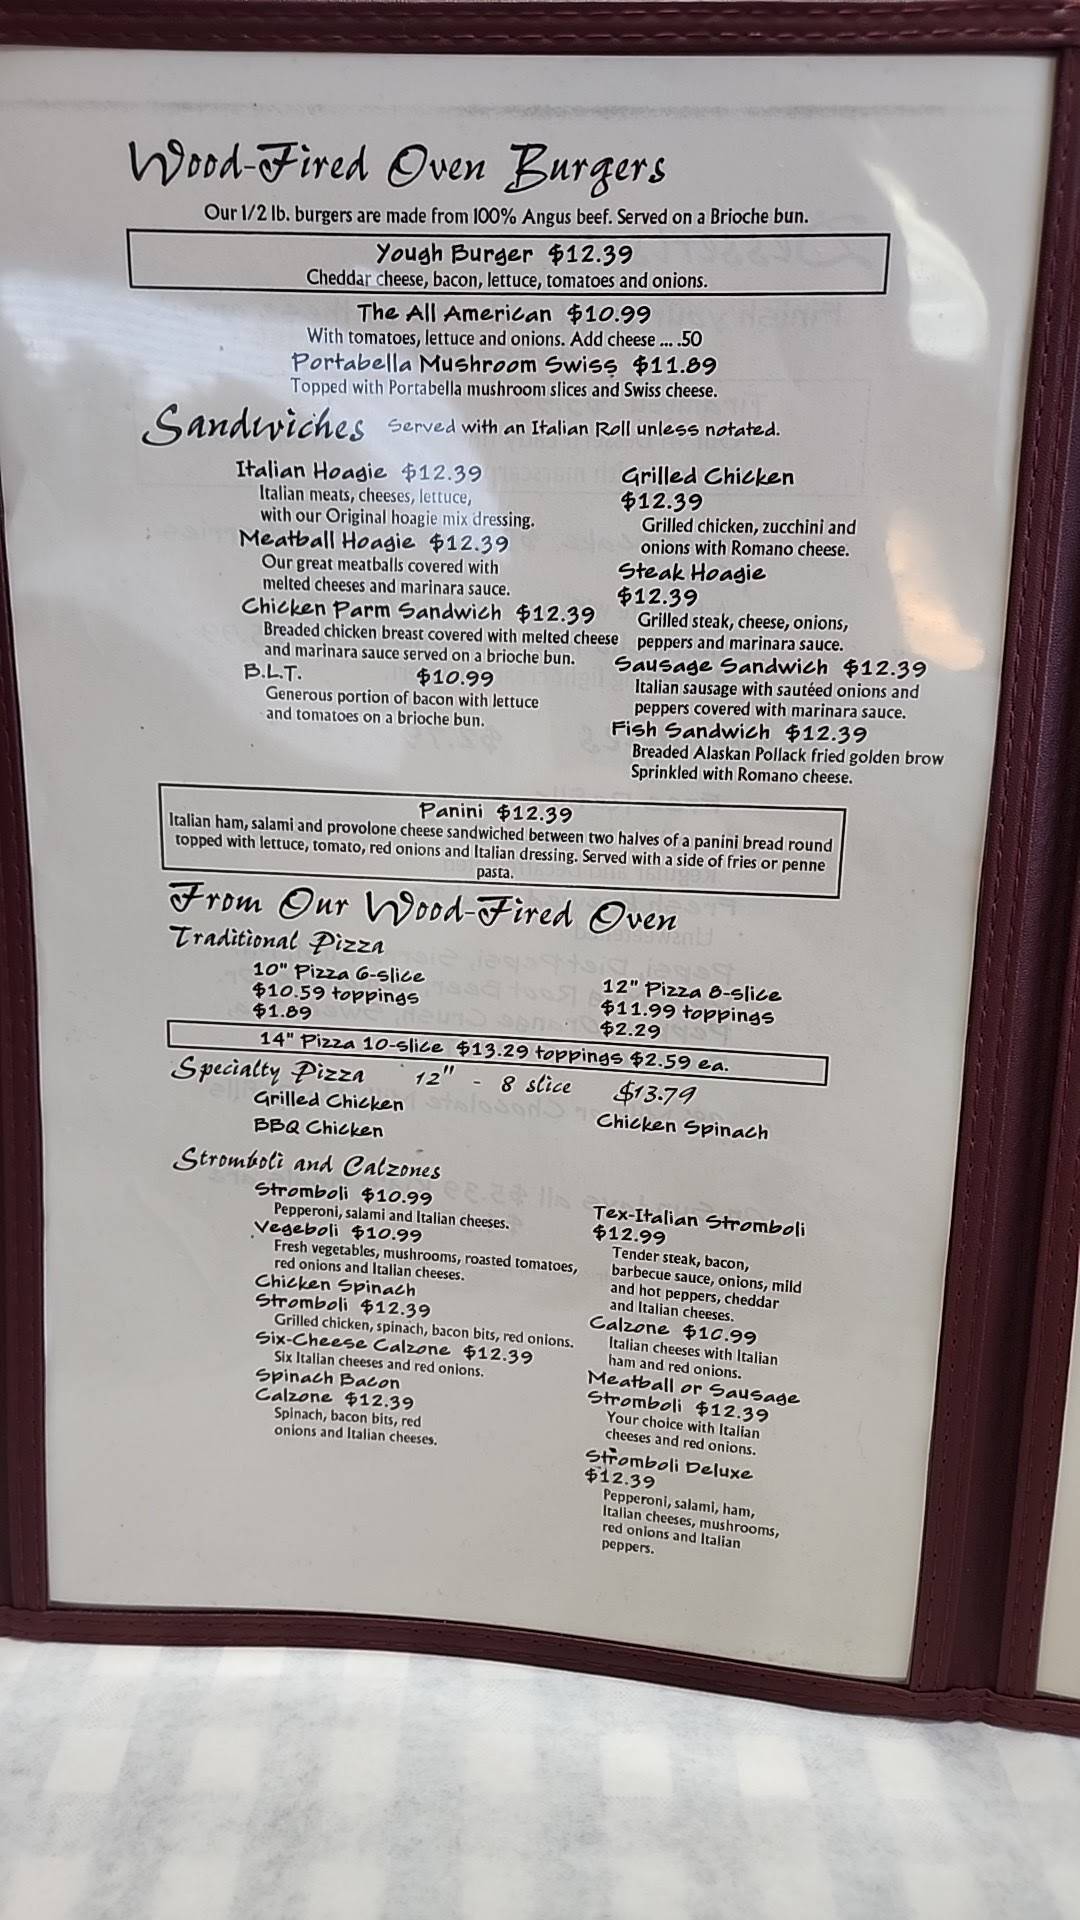 Wood-Fired Oven Burgers
Our 1/2 lb. burgers are made from 100% Angus beef. Served on a Brioche bun.
Yough Burger $12.39
Cheddar cheese, bacon, lettuce, tomatoes and onions.
The All American $10.99
With tomatoes, lettuce and onions. Add cheese ... .50
Portabella Mushroom Swiss $11.89
Topped with Portabella mushroom slices and Swiss cheese.
Sandwiches Served with an Italian Roll unless notated.
Italian Hoagie $12.39
Italian meats, cheeses, lettuce,
with our Original hoagie mix dressing.
Meatball Hoagie $12.39
Our great meatballs covered with
melted cheeses and marinara sauce.
Chicken Parm Sandwich $12.39
Breaded chicken breast covered with melted cheese
and marinara sauce served on a brioche bun.
B.L.T. $10.99
Generous portion of bacon with lettuce
and tomatoes on a brioche bun.
Grilled Chicken
$12.39
Grilled chicken, zucchini and
onions with Romano cheese.
Steak Hoagie
$12.39
Grilled steak, cheese, onions,
peppers and marinara sauce.
Sausage Sandwich $12.39
Italian sausage with sautéed onions and
peppers covered with marinara sauce.
Fish Sandwich $12.39
Breaded Alaskan Pollack fried golden brow
Sprinkled with Romano cheese.
Panini $12.39
Italian ham, salami and provolone cheese sandwiched between two halves of a panini bread round
topped with lettuce, tomato, red onions and Italian dressing. Served with a side of fries or penne
pasta.
From Our Wood-Fired Oven
Traditional Pizza
10" Pizza 6-slice
$10.59 toppings
$1.89
12" Pizza 8-slice
$11.99 toppings
$2.29
14" Pizza 10-slice $13.29 toppings $2.59 ea.
Specialty Pizza 12" - 8 slice $13.79
Grilled Chicken
BBQ Chicken
Chicken Spinach
Stromboli and Calzones
Stromboli $10.99
Pepperoni, salami and Italian cheeses.
Vegeboli $10.99
Fresh vegetables, mushrooms, roasted tomatoes,
red onions and Italian cheeses.
Chicken Spinach
Stromboli $12.39
Grilled chicken, spinach, bacon bits, red onions.
Six-Cheese Calzone $12.39
Six Italian cheeses and red onions.
Spinach Bacon
Calzone $12.39
Spinach, bacon bits, red
onions and Italian cheeses.
Tex-Italian Stromboli
$12.99
Tender steak, bacon,
barbecue sauce, onions, mild
and hot peppers, cheddar
and Italian cheeses.
Calzone $10.99
Italian cheeses with Italian
ham and red onions.
Meatball or Sausage
Stromboli $12.39
Your choice with Italian
cheeses and red onions.
Stromboli Deluxe
$12.39
Pepperoni, salami, ham,
Italian cheeses, mushrooms,
red onions and Italian
peppers.